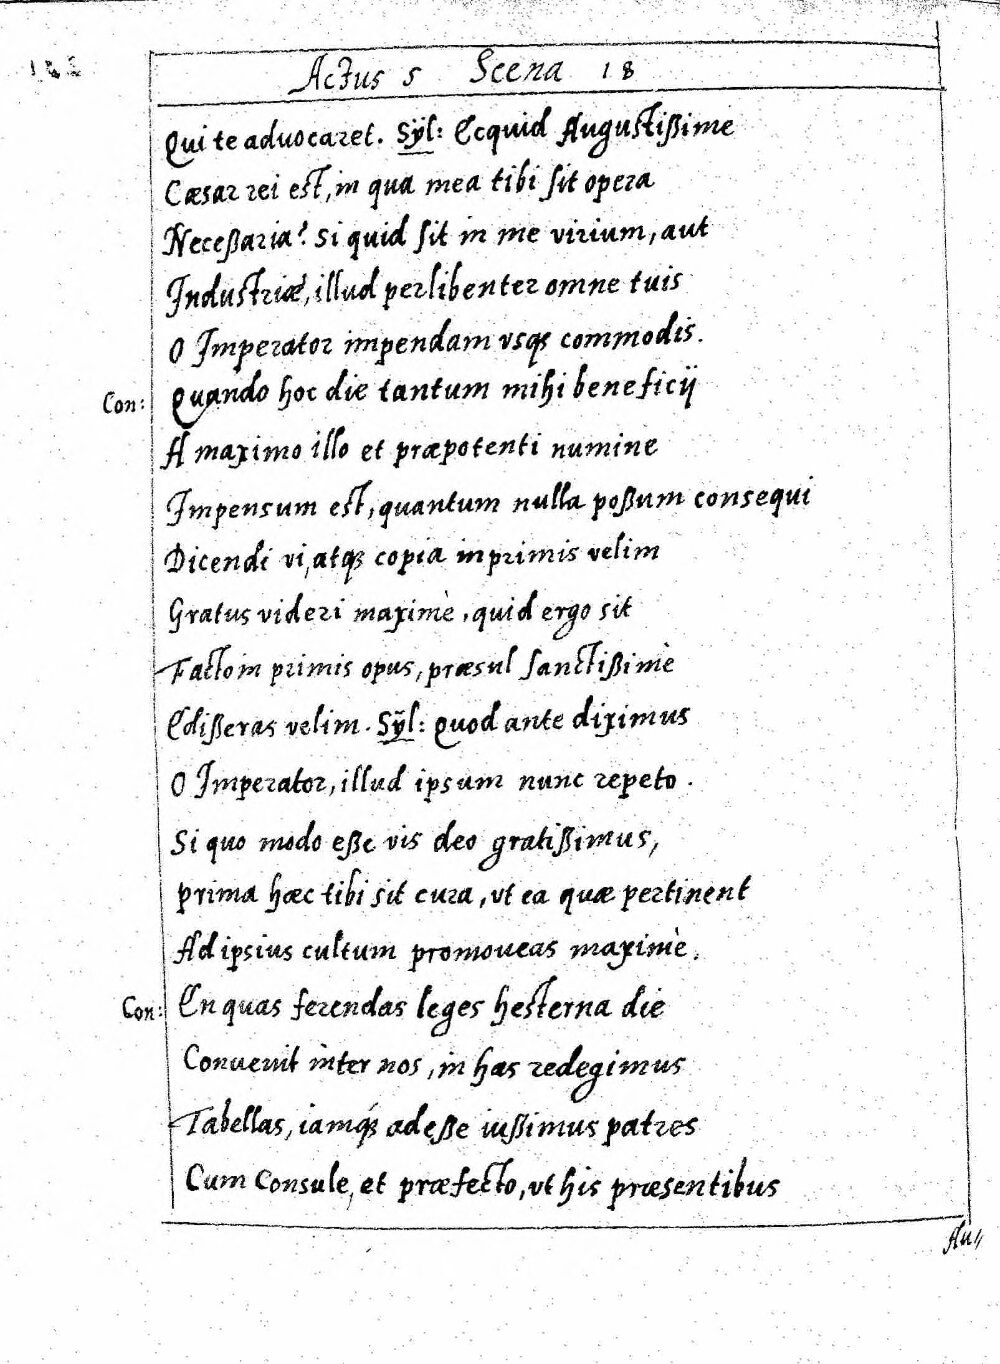 Actus 5 Scena 18
Qui te aduocaret. Sÿl: Ecquid Augustißime
Cæsar rei est, in qua mea tibi sit opera
Neceßaria? Si quid sit in me virium, aut
Industriæ, illud perlibenter omne tuis
O Imperator impendam vsqꝫ commodis.
Con: Quando hoc die tantum mihi beneficij
A maximo illo et præpotenti numine
Impensum est, quantum nulla poßum consequi
Dicendi vi, atqꝫ copia inprimis velim
Gratus videri maximè, quid ergo sit
Facto in primis opus, præsul sanctißimè
Edißeras velim. Sÿl: Quod ante diximus
O Imperator, illud ipsum nunc repeto.
Si quo modo eße vis deo gratißimus,
prima hæc tibi sit cura, vt ea quæ pertinent
Ad ipsius cultum promoueas maximè.
Con: En quas ferendas leges hesterna die
Conuenit inter nos, in has redegimus
Tabellas, iamqꝫ adeße iußimus patres
Cum Consule, et præfecto, vt his præsentibus